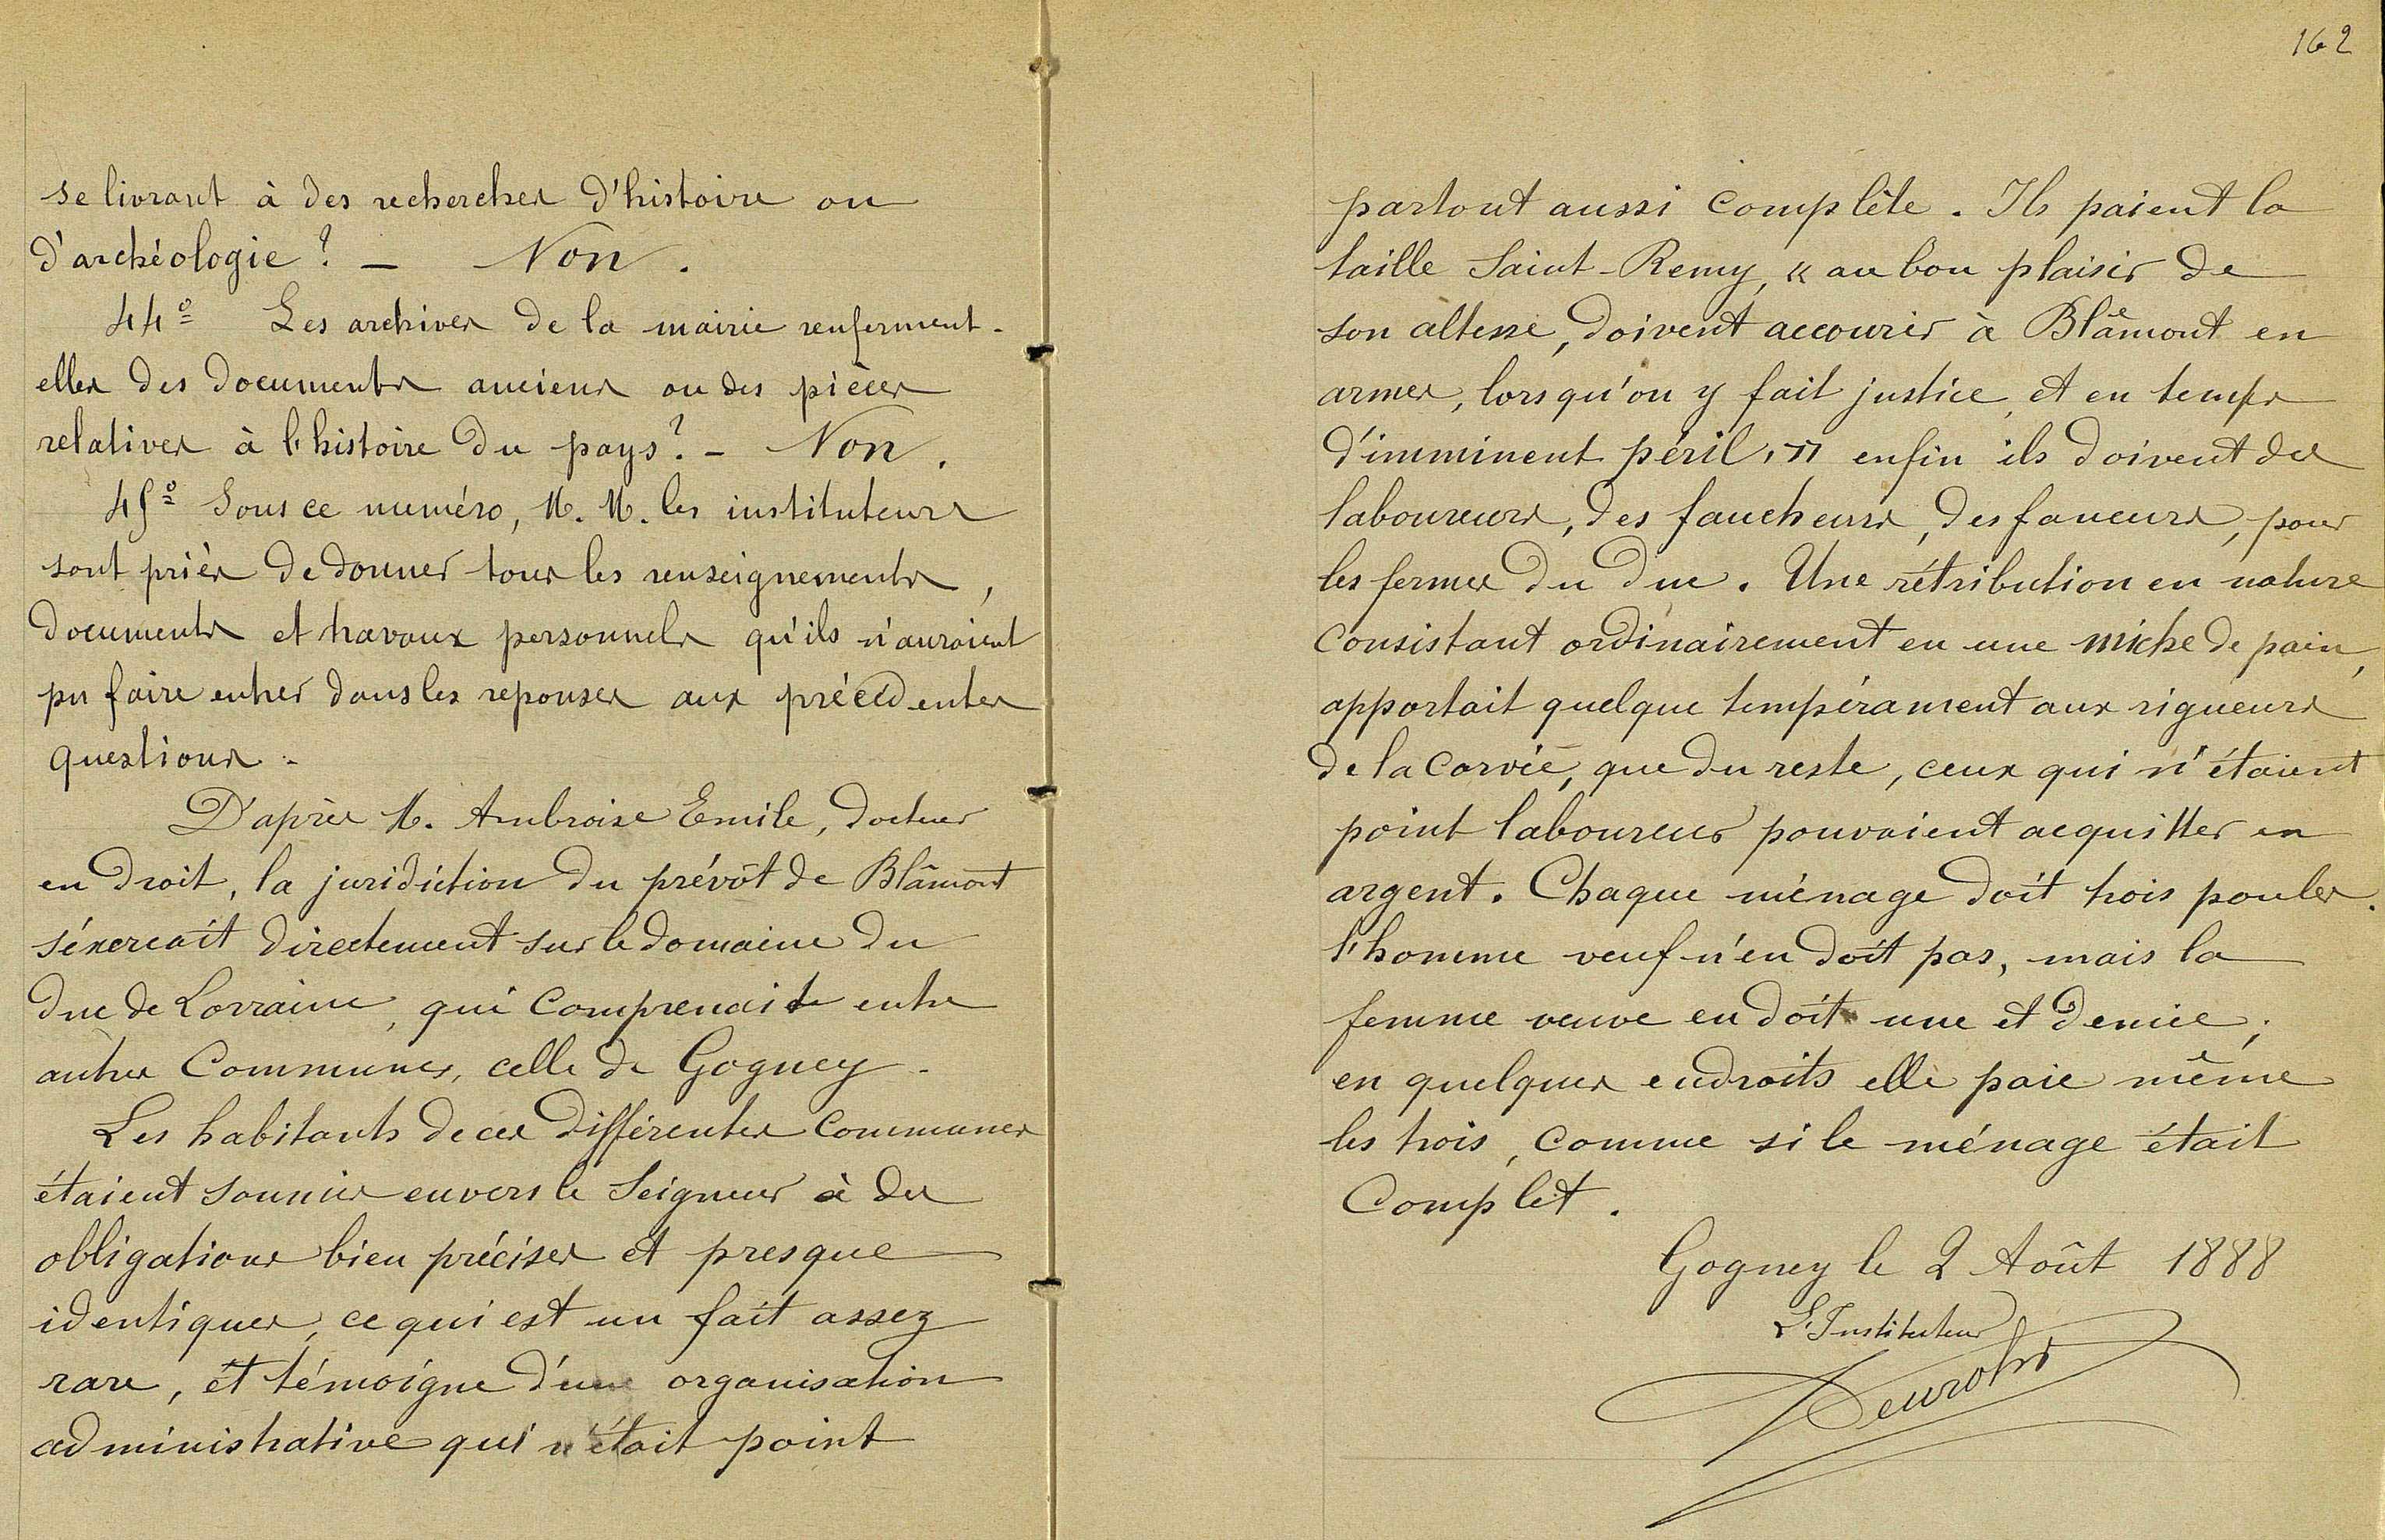 se livrant à des recherches d'histoire ou
d'archéologie ? — Non.
44° Les archives de la mairie renferment-
elles des documents anciens ou des pièces
relatives à l'histoire du pays ? — Non.
45° Sous ce numéro, M. M. les instituteurs
sont priés de donner tous les renseignements,
documents et travaux personnels qu'ils n'auraient
pu faire entrer dans les reponses aux précédentes
questions.
D'après M. Ambroise Emile, docteur
en droit, la juridiction du prévôt de Blâmont
s'éxercait directement sur le domaine du
duc de Lorraine, qui comprenait entre
autres Communes, celle de Gogney.
Les habitants de ces différentes communes
étaient soumis envers le Seigneur à des
obligations bien précises et presque
identiques, ce qui est un fait assez
rare, et témoigne d'une organisation
administrative qui n'était point
162
partout aussi complète. Ils paient la
taille Saint-Remy, « au bon plaisir de
son altesse, doivent accourir à Blâmont en
armes, lorsqu'on y fait justice, et en temps
d'imminent péril, » enfin ils doivent des
laboureurs, des faucheurs, des faneurs, pour
les fermes du duc. Une rétribution en nature
consistant ordinairement en une miche de pain,
apportait quelque tempérament aux rigueurs
de la corvée, que du reste, ceux qui n'étaient
point laboureurs pouvaient acquitter en
argent. Chaque ménage doit trois poules.
l'homme veuf n'en doit pas, mais la
femme veuve en doit une et demie ;
en quelques endroits elle paie même
les trois, comme si le ménage était
Complet.
Gogney le 2 Août 1888
L'Instituteur